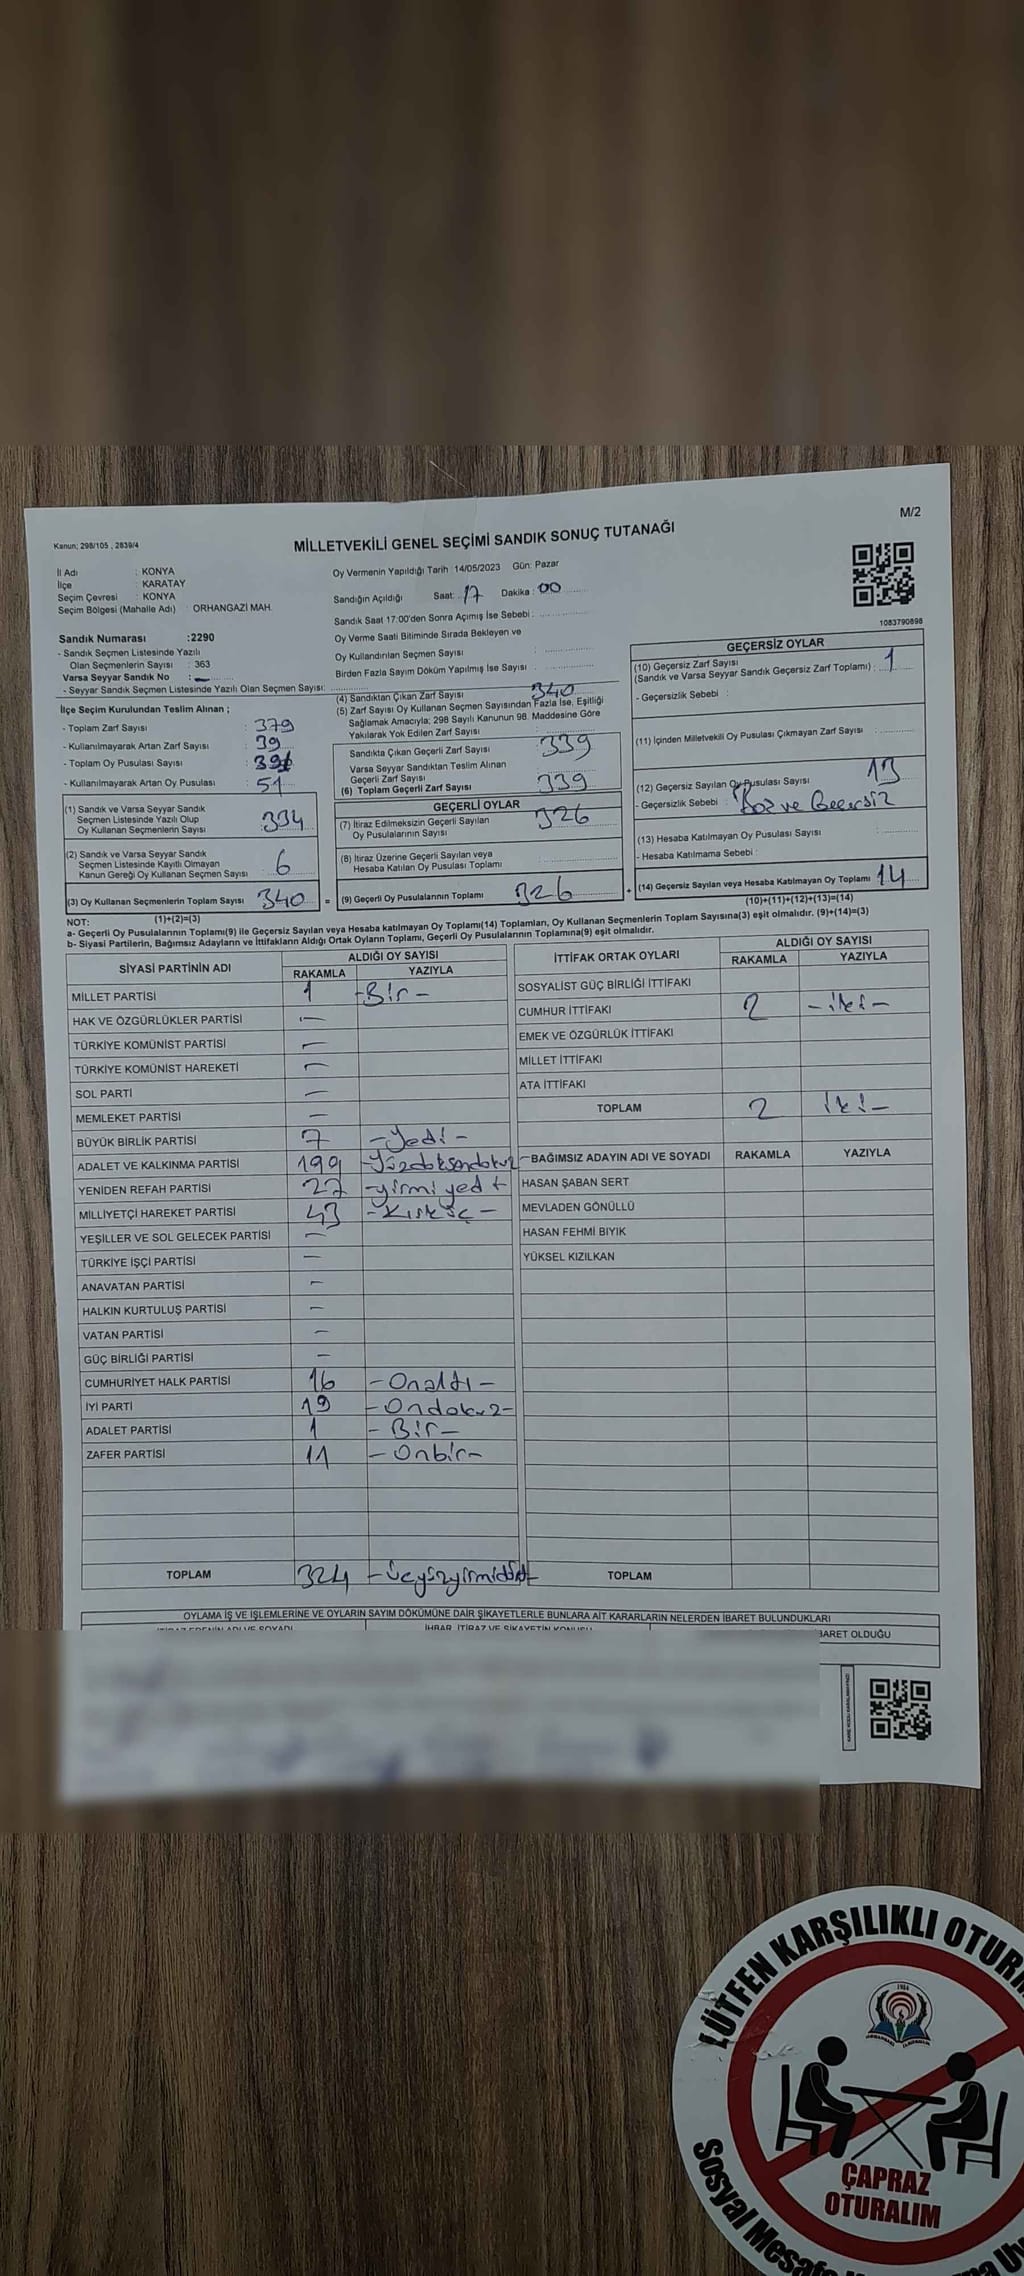 M/2
Kanun; 298/105 , 2839/4
MİLLETVEKİLİ GENEL SEÇİMİ SANDIK SONUÇ TUTANAĞI
İl Adı : KONYA
İlçe : KARATAY
Seçim Çevresi : KONYA
Seçim Bölgesi (Mahalle Adı) : ORHANGAZİ MAH.
Sandık Numarası :2290
- Sandık Seçmen Listesinde Yazılı
Olan Seçmenlerin Sayısı : 363
Varsa Seyyar Sandık No : —
- Seyyar Sandık Seçmen Listesinde Yazılı Olan Seçmen Sayısı:
Oy Vermenin Yapıldığı Tarih :14/05/2023 Gün: Pazar
Sandığın Açıldığı Saat: 17 Dakika : 00
Sandık Saat 17:00'den Sonra Açımış İse Sebebi :
Oy Verme Saati Bitiminde Sırada Bekleyen ve
Oy Kullandırılan Seçmen Sayısı :
Birden Fazla Sayım Döküm Yapılmış İse Sayısı :
1083790898
İlçe Seçim Kurulundan Teslim Alınan ;
- Toplam Zarf Sayısı : 379
- Kullanılmayarak Artan Zarf Sayısı : 39
- Toplam Oy Pusulası Sayısı :
- Kullanılmayarak Artan Oy Pusulası : 51
(1) Sandık ve Varsa Seyyar Sandık
Seçmen Listesinde Yazılı Olup
Oy Kullanan Seçmenlerin Sayısı : 334
(2) Sandık ve Varsa Seyyar Sandık
Seçmen Listesinde Kayıtlı Olmayan
Kanun Gereği Oy Kullanan Seçmen Sayısı : 6
(3) Oy Kullanan Seçmenlerin Toplam Sayısı : 340 =
(1)+(2)=(3)
(4) Sandıktan Çıkan Zarf Sayısı : 340
(5) Zarf Sayısı Oy Kullanan Seçmen Sayısından Fazla İse, Eşitliği
Sağlamak Amacıyla; 298 Sayılı Kanunun 98. Maddesine Göre
Yakılarak Yok Edilen Zarf Sayısı :
Sandıkta Çıkan Geçerli Zarf Sayısı : 339
Varsa Seyyar Sandıktan Teslim Alınan
Geçerli Zarf Sayısı :
(6) Toplam Geçerli Zarf Sayısı : 339
GEÇERLİ OYLAR
(7) İtiraz Edilmeksizin Geçerli Sayılan
Oy Pusulalarının Sayısı : 326
(8) İtiraz Üzerine Geçerli Sayılan veya
Hesaba Katılan Oy Pusulası Toplamı :
(9) Geçerli Oy Pusulalarının Toplamı : 326 +
GEÇERSİZ OYLAR
(10) Geçersiz Zarf Sayısı
(Sandık ve Varsa Seyyar Sandık Geçersiz Zarf Toplamı) : 1
- Geçersizlik Sebebi :
(11) İçinden Milletvekili Oy Pusulası Çıkmayan Zarf Sayısı :
(12) Geçersiz Sayılan Oy Pusulası Sayısı : 13
- Geçersizlik Sebebi : Boş ve Geçersiz
(13) Hesaba Katılmayan Oy Pusulası Sayısı :
- Hesaba Katılmama Sebebi :
(14) Geçersiz Sayılan veya Hesaba Katılmayan Oy Toplamı : 14
(10)+(11)+(12)+(13)=(14)
NOT:
a- Geçerli Oy Pusulalarının Toplamı(9) ile Geçersiz Sayılan veya Hesaba katılmayan Oy Toplamı(14) Toplamları, Oy Kullanan Seçmenlerin Toplam Sayısına(3) eşit olmalıdır. (9)+(14)=(3)
b- Siyasi Partilerin, Bağımsız Adayların ve İttifakların Aldığı Ortak Oyların Toplamı, Geçerli Oy Pusulalarının Toplamına(9) eşit olmalıdır.
SİYASİ PARTİNİN ADI ALDIĞI OY SAYISI
RAKAMLA YAZIYLA
MİLLET PARTİSİ 1 -Bir-
HAK VE ÖZGÜRLÜKLER PARTİSİ —
TÜRKİYE KOMÜNİST PARTİSİ —
TÜRKİYE KOMÜNİST HAREKETİ —
SOL PARTİ —
MEMLEKET PARTİSİ —
BÜYÜK BİRLİK PARTİSİ 7 -Yedi-
ADALET VE KALKINMA PARTİSİ 199 -Yüzdoksandokuz-
YENİDEN REFAH PARTİSİ 27 -yirmiyedi
MİLLİYETÇİ HAREKET PARTİSİ 43 -Kırküç-
YEŞİLLER VE SOL GELECEK PARTİSİ —
TÜRKİYE İŞÇİ PARTİSİ —
ANAVATAN PARTİSİ —
HALKIN KURTULUŞ PARTİSİ —
VATAN PARTİSİ —
GÜÇ BİRLİĞİ PARTİSİ —
CUMHURİYET HALK PARTİSİ 16 -Onaltı-
İYİ PARTİ 19 -Ondokuz-
ADALET PARTİSİ 1 -Bir-
ZAFER PARTİSİ 11 -Onbir-
TOPLAM 324 -üçyüzyirmidört-
İTTİFAK ORTAK OYLARI ALDIĞI OY SAYISI
RAKAMLA YAZIYLA
SOSYALİST GÜÇ BİRLİĞİ İTTİFAKI
CUMHUR İTTİFAKI 2 -iki-
EMEK VE ÖZGÜRLÜK İTTİFAKI
MİLLET İTTİFAKI
ATA İTTİFAKI
TOPLAM 2 iki-
BAĞIMSIZ ADAYIN ADI VE SOYADI RAKAMLA YAZIYLA
HASAN ŞABAN SERT
MEVLADEN GÖNÜLLÜ
HASAN FEHMI BIYIK
YÜKSEL KIZILKAN
TOPLAM
OYLAMA İŞ VE İŞLEMLERİNE VE OYLARIN SAYIM DÖKÜMÜNE DAİR ŞİKAYETLERLE BUNLARA AİT KARARLARIN NELERDEN İBARET BULUNDUKLARI
İTİRAZ EDENİN ADI VE SOYADI İHBAR, İTİRAZ VE ŞİKAYETİN KONUSU İBARET OLDUĞU
LÜTFEN KARŞILIKLI OTURM
1984
ÇAPRAZ
OTURALIM
Sosyal Mesafe